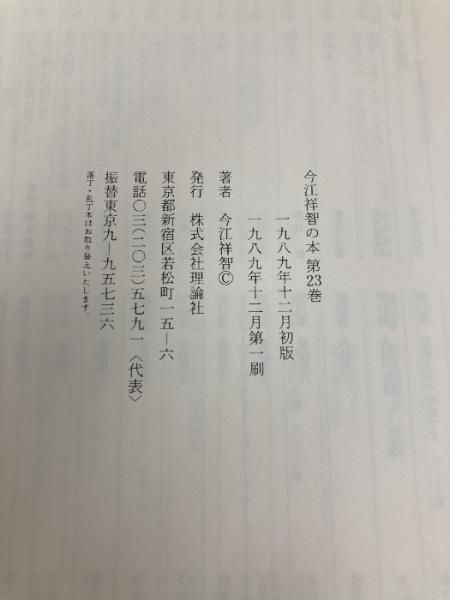 今江祥智の本 第23巻
一九八九年十二月初版
一九八九年十二月第一刷
著者 今江祥智Ⓒ
発行 株式会社理論社
東京都新宿区若松町一五―六
電話〇三(二〇三)五七九一〈代表〉
振替東京九―九五七三六
落丁・乱丁本はお取り替えいたします。